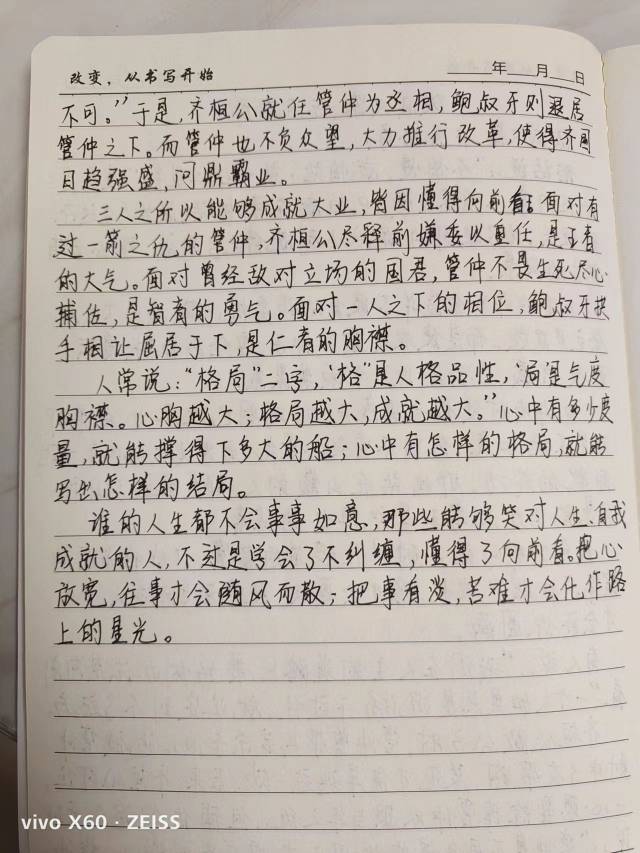 改变，从书写开始
年 月 日
不可。”于是，齐桓公就任管仲为丞相，鲍叔牙则退居
管仲之下。而管仲也不负众望，大力推行改革，使得齐国
日趋强盛，问鼎霸业。
三人之所以能够成就大业，皆因懂得向前看：面对有
过一箭之仇的管仲，齐桓公尽释前嫌委以重任，是王者
的大气。面对曾经敌对立场的国君，管仲不畏生死尽心
辅佐，是智者的勇气。面对一人之下的相位，鲍叔牙拱
手相让屈居于下，是仁者的胸襟。
人常说：“格局”二字，‘格’是人格品性，‘局’是气度
胸襟。心胸越大；格局越大，成就越大。”心中有多少度
量，就能撑得下多大的船；心中有怎样的格局，就能
写出怎样的结局。
谁的人生都不会事事如意，那些能够笑对人生、自我
成就的人，不过是学会了不纠缠，懂得了向前看。把心
放宽，往事才会随风而散；把事看淡，苦难才会化作路
上的星光。
vivo X60 · ZEISS